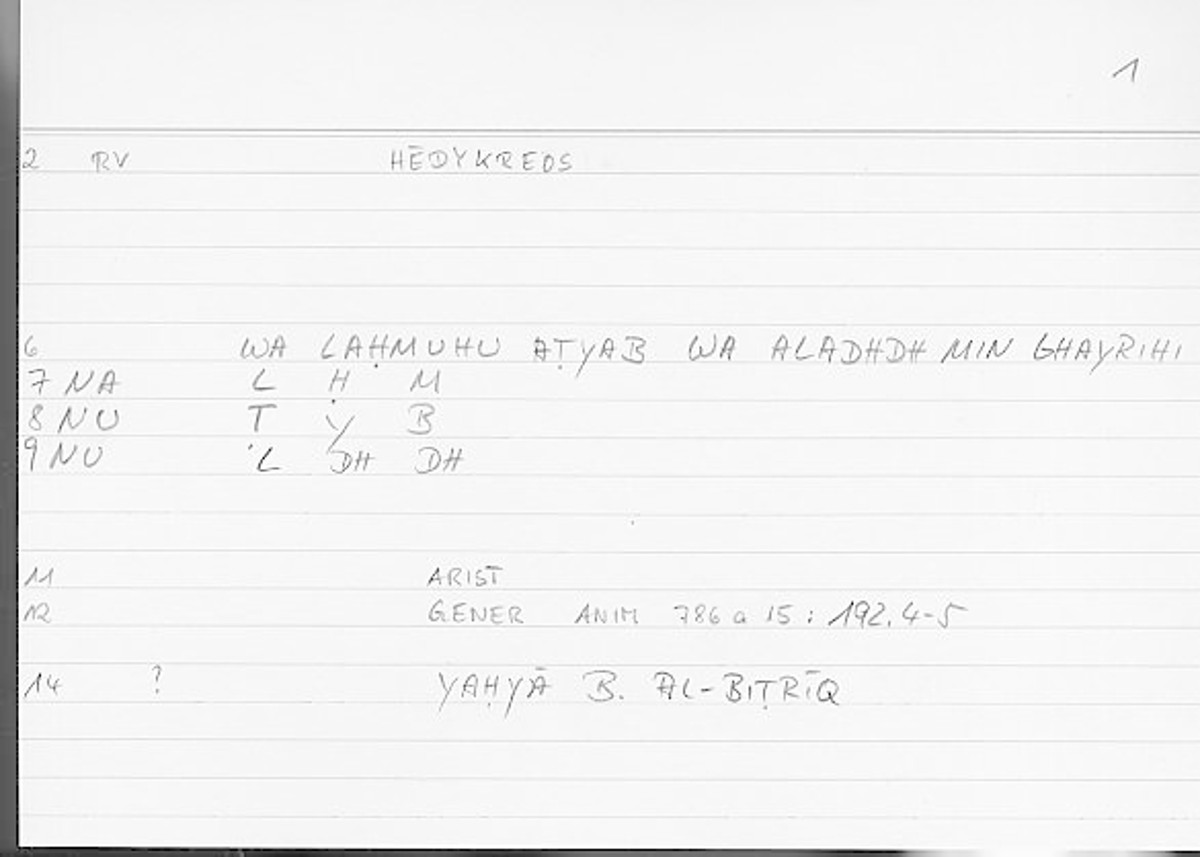 1
2 RV HĒDYKREOS
6 WA LAḤMUHU AṬYAB WA ALADHDH MIN GHAYRIHI
7 NA L Ḥ M
8 NU T Y B
9 NU 'L DH DH
11 ARIST
12 GENER ANIM 786 a 15 : 192.4-5
14 ? YAḤYĀ B. AL-BIṬRĪQ